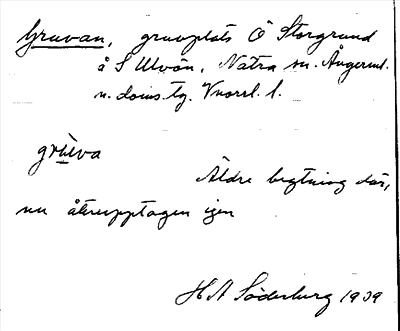 Gruvan, gruvplats Ö Storgrund
å S Ulvön, Nätra sn. Ångerml.
n. doms.tg. Vnorrl. l.
grùva
Äldre brytning där,
nu återupptagen igen
H A Söderberg 1939